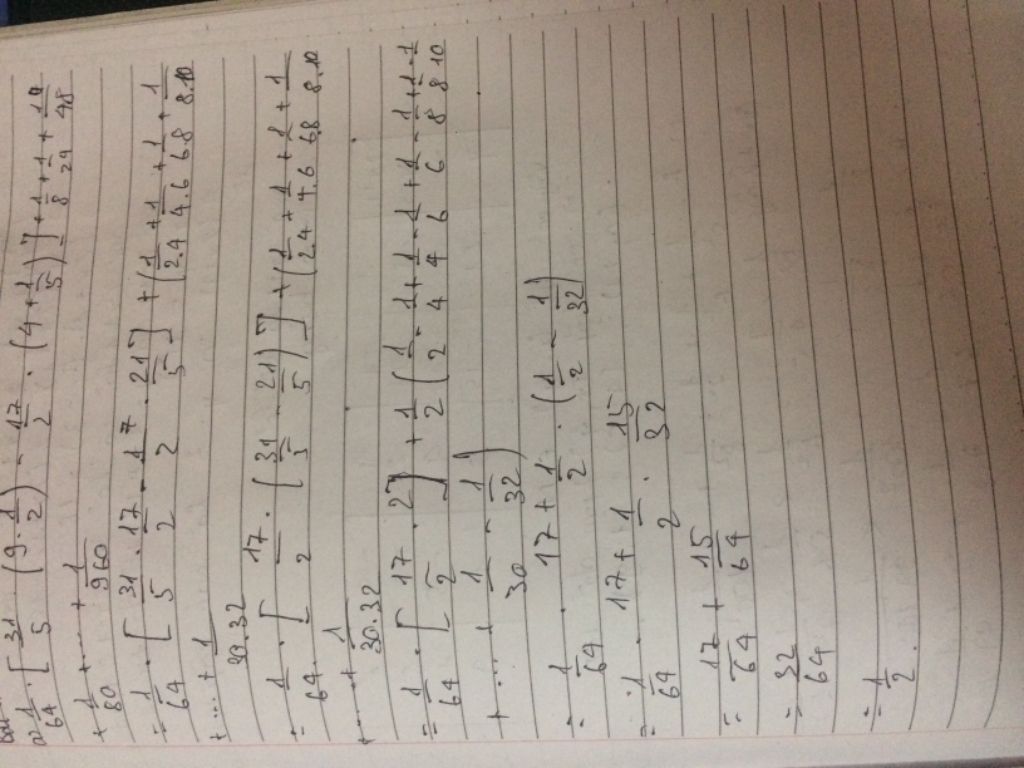 a) 1/64 . [ 31/5 . (9 . 1/2) - 17/2 . (4 + 1/5) ] + 1/8 + 1/24 + 1/48
+ 1/80 + ... + 1/960
= 1/64 . [ 31/5 . 17/2 - 17/2 . 21/5 ] + ( 1/2.4 + 1/4.6 + 1/6.8 + 1/8.10
+ ... + 1/30.32
= 1/64 . [ 17/2 . ( 31/5 - 21/5 ) ] + ( 1/2.4 + 1/4.6 + 1/6.8 + 1/8.10
+ ... + 1/30.32
= 1/64 . [ 17/2 . 2 ] + 1/2 ( 1/2 - 1/4 + 1/4 - 1/6 + 1/6 - 1/8 + 1/8 - 1/10
+ ... + 1/30 - 1/32 )
= 1/64 . 17 + 1/2 . ( 1/2 - 1/32 )
= 1/64 . 17 + 1/2 . 15/32
= 17/64 + 15/64
= 32/64
= 1/2 .